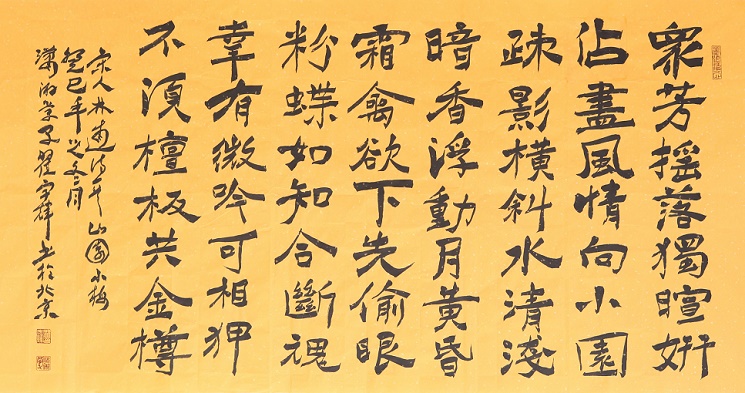 衆芳摇落獨暄妍
佔盡風情向小園
疎影橫斜水清淺
暗香浮動月黃昏
霜禽欲下先偷眼
粉蝶如知合斷魂
幸有微吟可相狎
不須檀板共金樽
宋人林逋詩一首山園小梅
癸巳年之五月
瀟湘策子翟宗輝書於北京